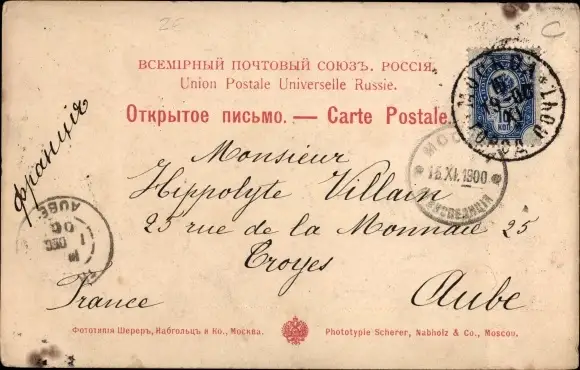 ВСЕМІРНЫЙ ПОЧТОВЫЙ СОЮЗЪ. РОССІЯ.
Union Postale Universelle Russie.
Открытое письмо. — Carte Postale.
Франція
Monsieur
Hippolyte Villain
25 rue de la Monnaie 25
Troyes
France
Aube
МОСКВА
10 КОП
16.XI.1900
AUBE
DEC
Фототипія Шереръ, Набгольцъ и Ко., Москва.
Phototypie Scherer, Nabholz & Co., Moscou.